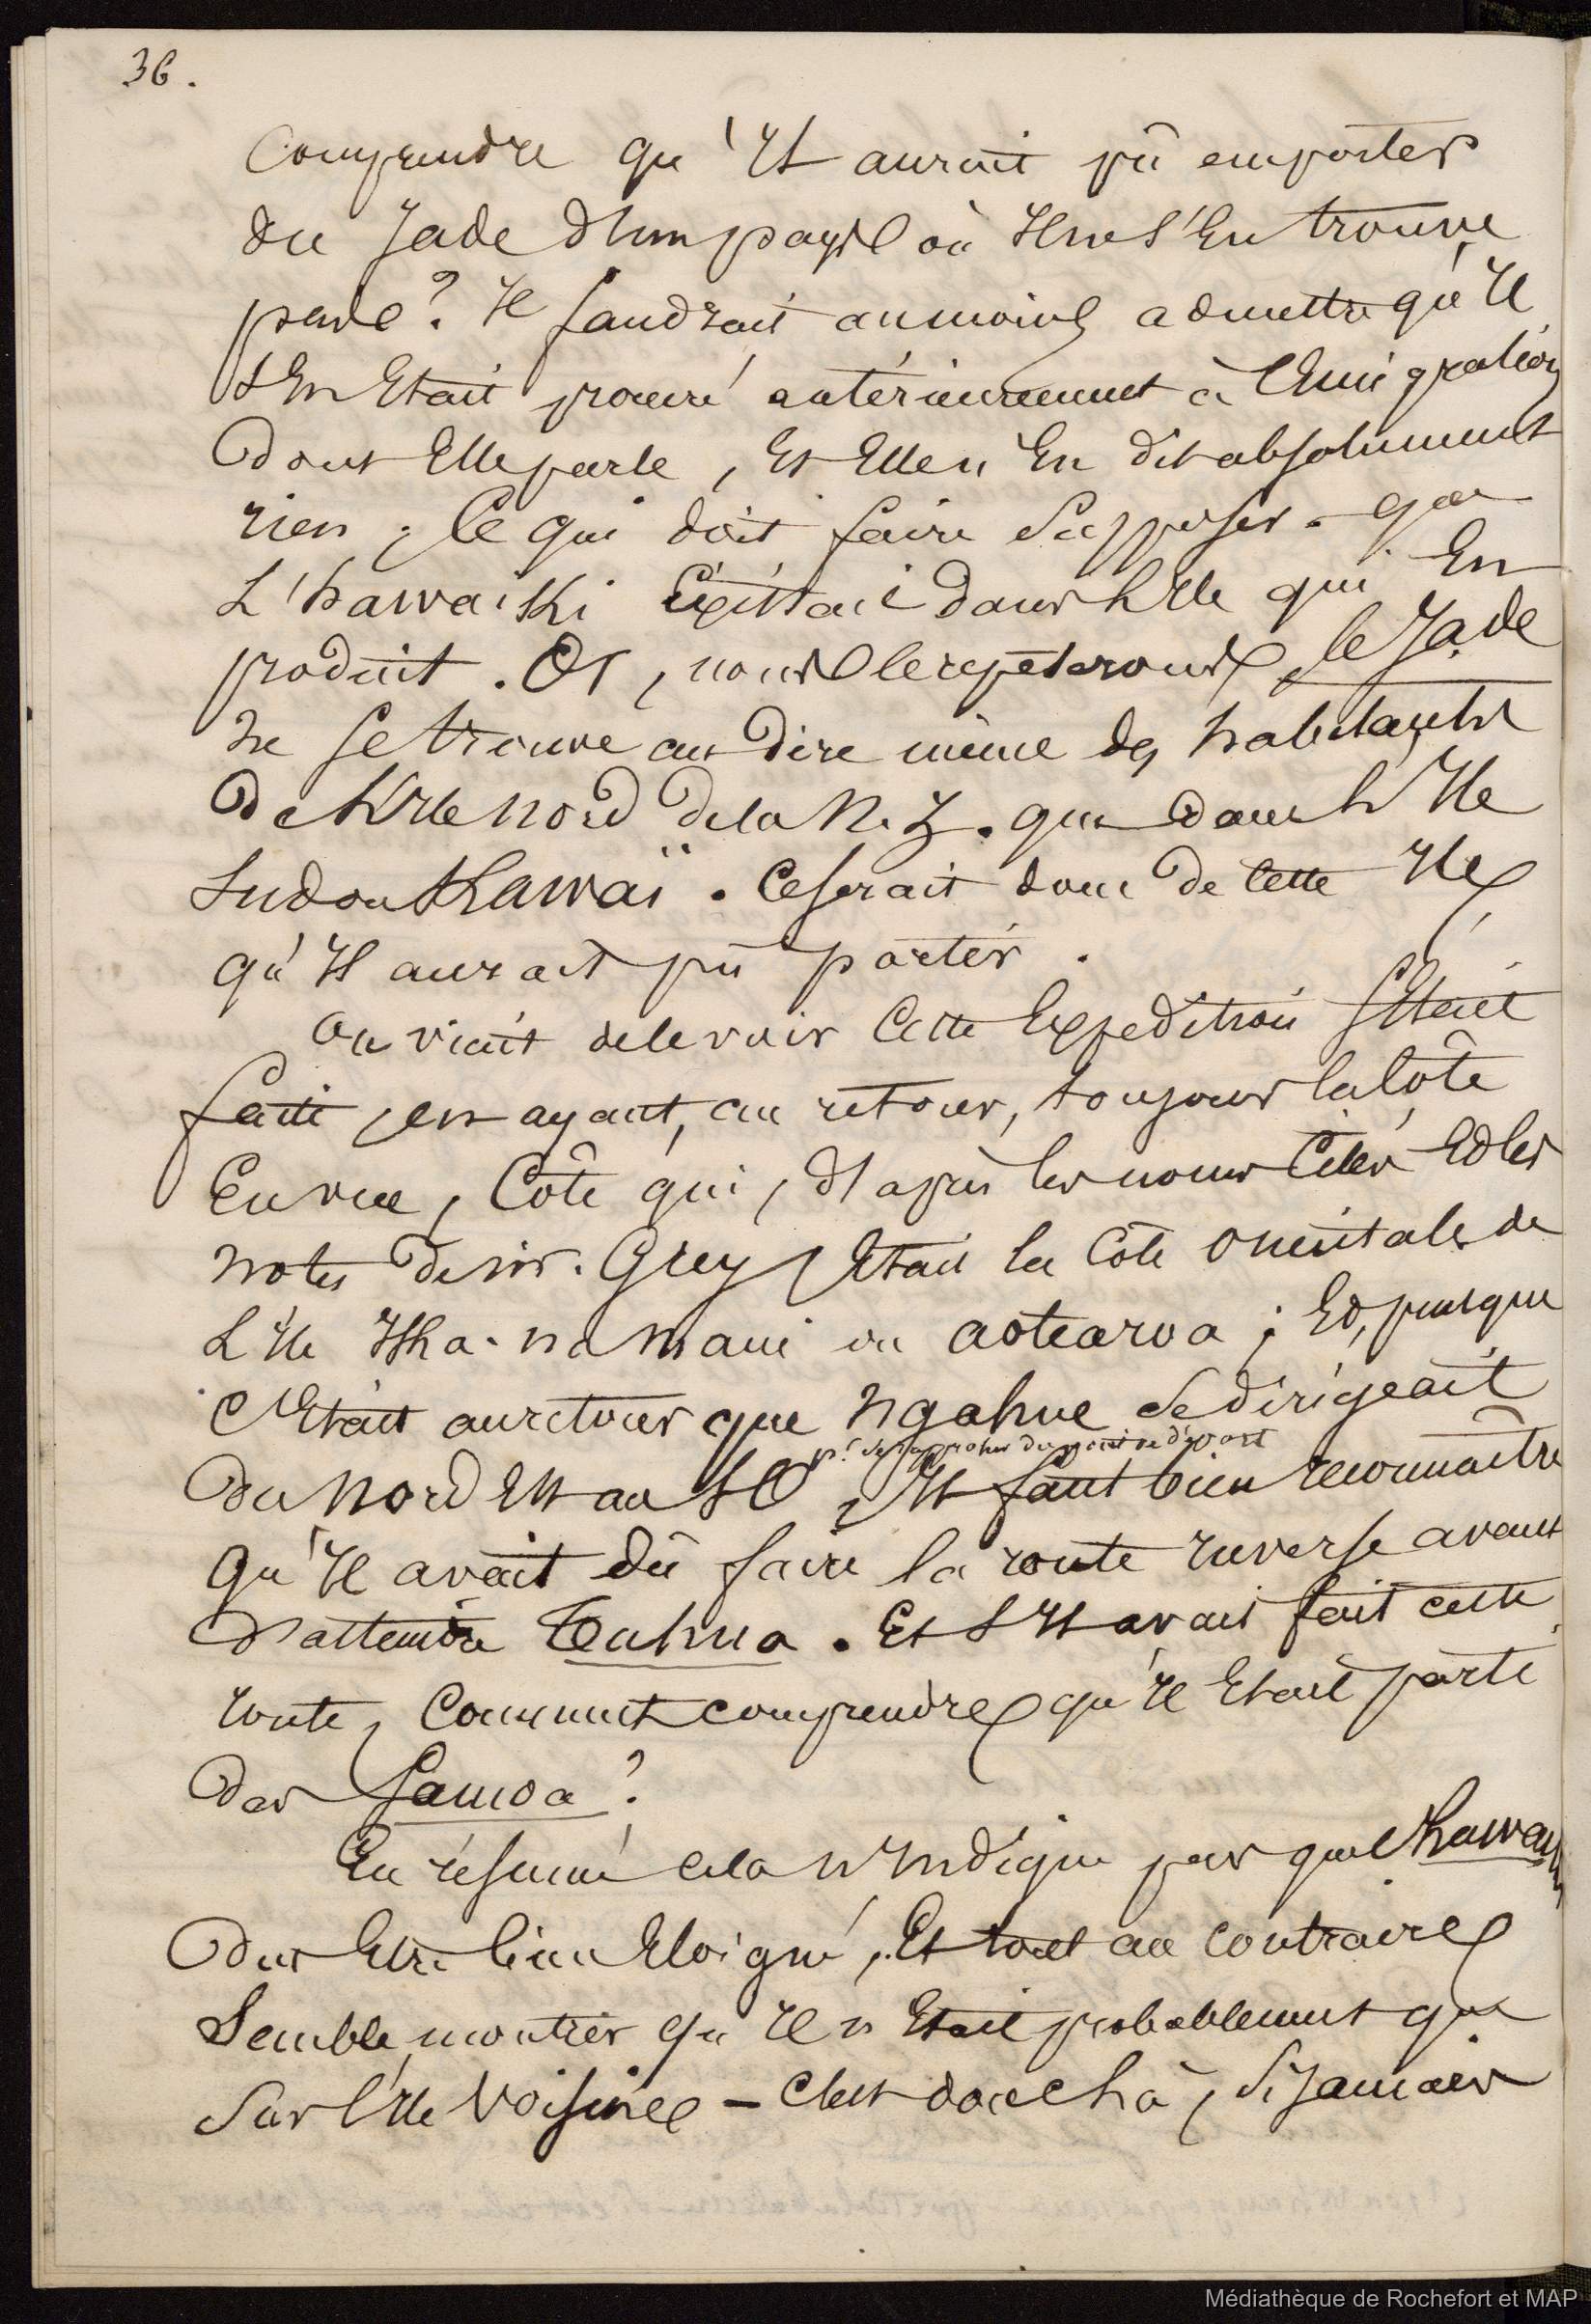 36.
Comprendre qu'Il aurait pû emporter
du Jade d'un pays où Il ne s'En trouve
pas ? Il faudrait au moins admettre qu'Il
s'En Etait procuré antérieurement à l'Emigration
dont Elle parle, Et Elle n'En dit absolument
rien ; Ce qui doit faire Supposer que
L'hawaiki Existait dans L'Ile qui En
produit. Or, nous le repeterons, le Jade
ne se trouve au dire même des habitants
de L'Ile Nord de la N. Z. que dans L'Ile
Sud ou Kawaï. Ce serait donc de cette Ile
qu'Il aurait pû partir.
On vient de le voir Cette Expedition s'Etait
faite, en ayant, au retour, toujours la Côte
En vue, Côte qui, d'après les noms Cités Et les
notes de sir. Grey, Etait la Côte Orientale de
L'Ile Ika-na-Maui ou aotearoa ; Et, puisque
C'Etait au retour que Ngahue se dirigeait
pr. se rapprocher du point de départ
du Nord Est au SO, Il faut bien reconnaître
qu'Il avait dû faire la route inverse avant
d'atteindre Tuhua. Et s'Il avait fait cette
route, Comment comprendre qu'Il Etait parti
des Samoa ?
En résumé cela n'Indique pas que L'hawaiki
dut Etre bien Eloigné, Et tout au contraire
Semble montrer qu'Il n'Etait probablement que
Sur l'Ile Voisine – C'est donc là, Si Jamais
Médiathèque de Rochefort et MAP